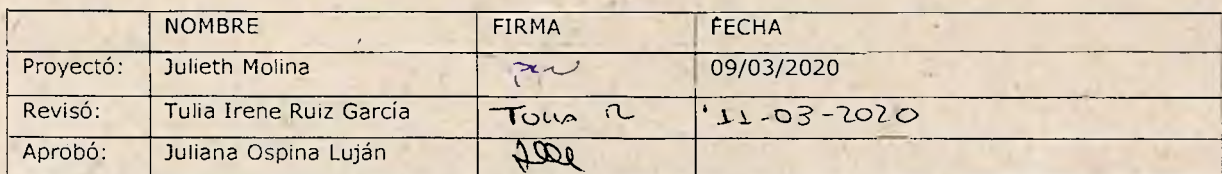 NOMBRE FIRMA FECHA
Proyectó: Julieth Molina 09/03/2020
Revisó: Tulia Irene Ruiz García Tulia R 11-03-2020
Aprobó: Juliana Ospina Luján